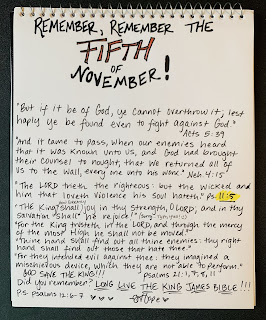 REMEMBER, REMEMBER THE
FIFTH
OF
NOVEMBER!
"But if it be of God, ye cannot overthrow it; lest
haply ye be found even to fight against God."
Acts 5:39
"And it came to pass, when our enemies heard
that it was known unto us, and God had brought
their counsel to nought, that we returned all of
us to the wall, every one unto his work." Neh. 4:15
"The LORD trieth the righteous: but the wicked and
him that loveth violence his soul hateth." Ps. 11:5
"THE King shall joy in thy strength, O LORD; and in thy
salvation shall he rejoice!
"For the King trusteth in the LORD, and through the mercy
of the most High he shall not be moved.
"Thine hand shall find out all thine enemies: thy right
hand shall find out those that hate thee."
"For they intended evil against thee: they imagined a
mischievous device, which they are not able to perform."
GOD SAVE THE KING!!! Psalms 21:1,7,8,11
Did you remember? LONG LIVE THE KING JAMES BIBLE!!!
P.S. Psalms 12:6-7